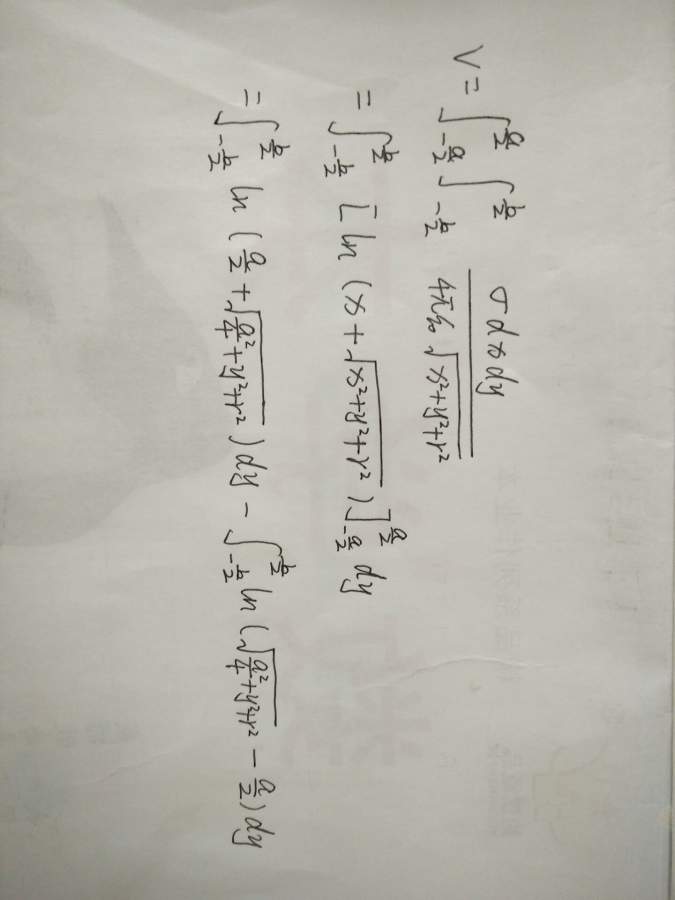 V = ∫_{-a/2}^{a/2} ∫_{-b/2}^{b/2} σdxdy / (4πε₀√(x²+y²+r²))
= ∫_{-b/2}^{b/2} [ln(x+√(x²+y²+r²))]_{-a/2}^{a/2} dy
= ∫_{-b/2}^{b/2} ln(a/2+√(a²/4+y²+r²))dy - ∫_{-b/2}^{b/2} ln(√(a²/4+y²+r²) - a/2)dy